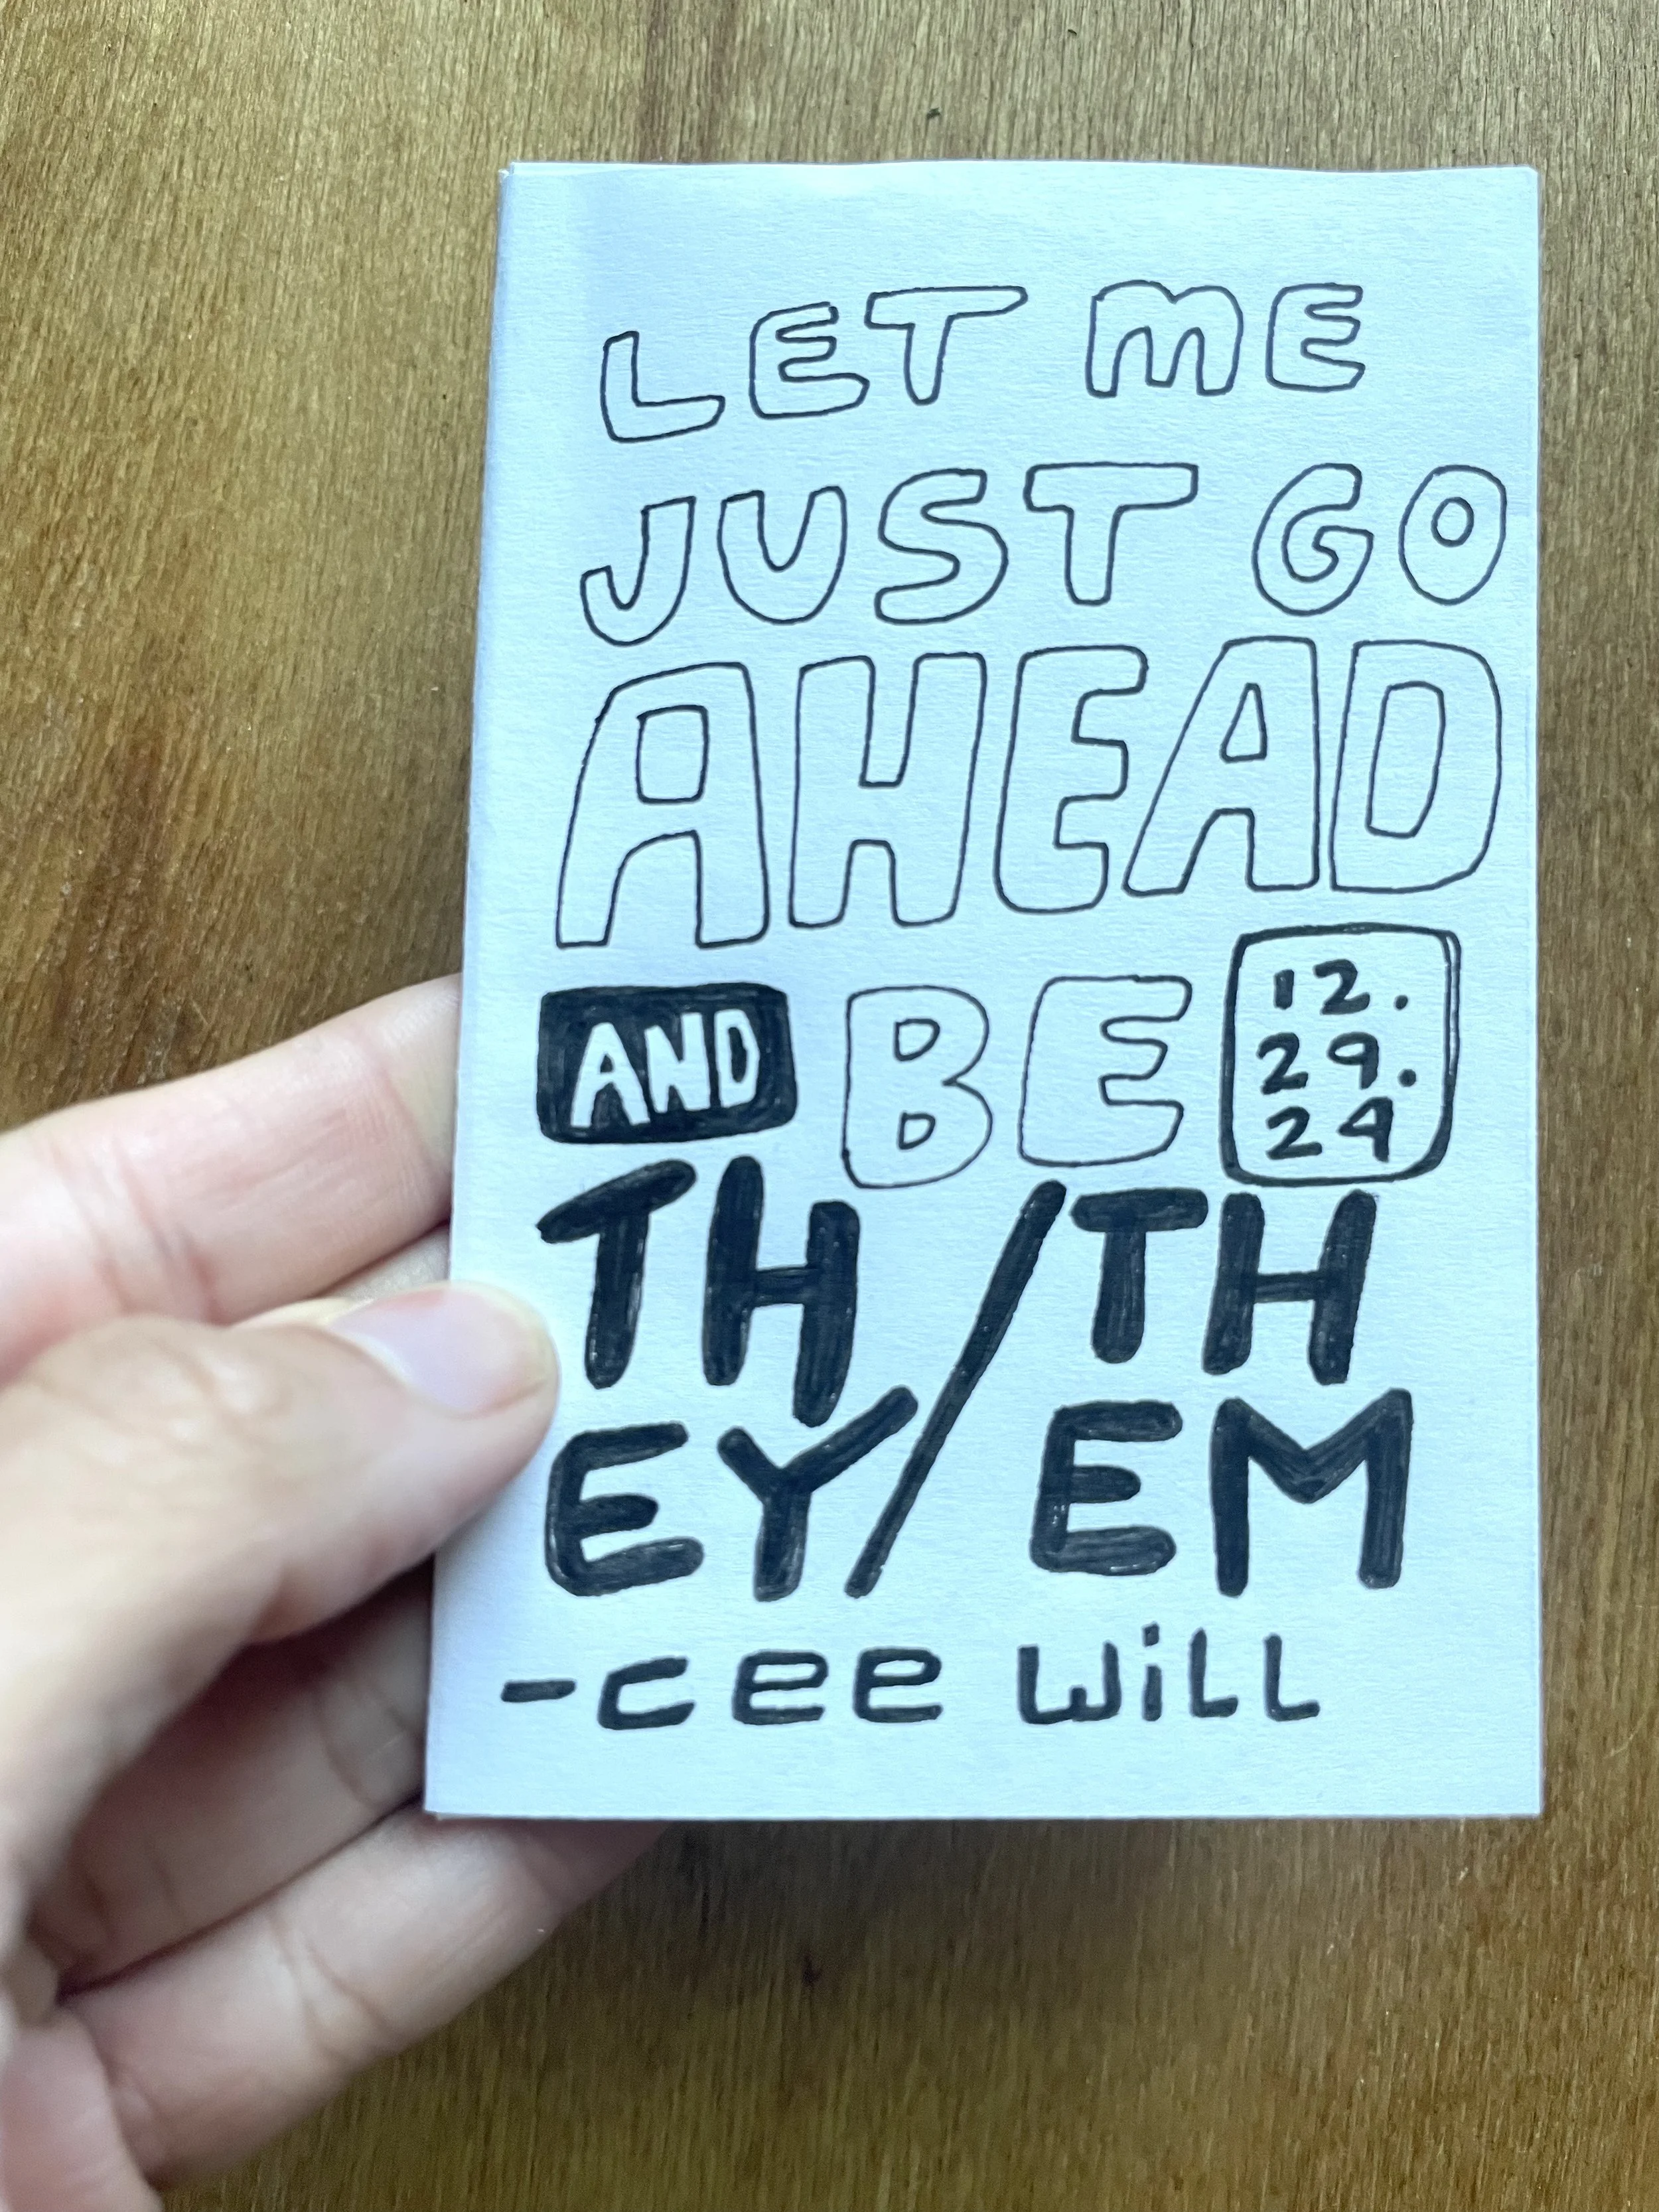 LET ME
JUST GO
AHEAD
AND BE
12.
29.
24
TH/TH
EY/EM
-cee will